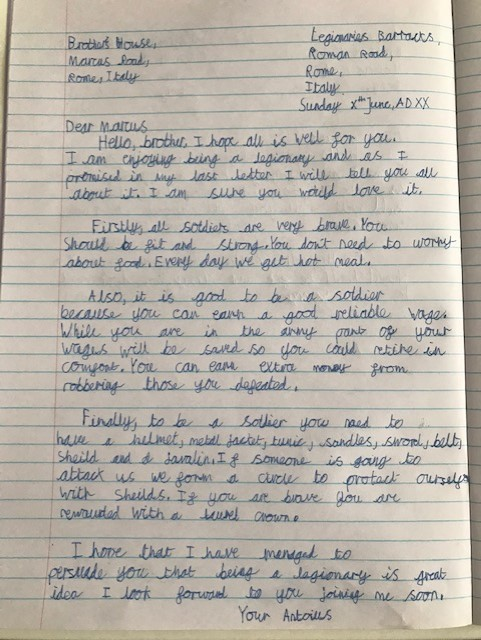 Brothers House,
Marcus Road,
Rome, Italy
Legionaries Barracks,
Roman Road,
Rome,
Italy
Sunday Xth June, AD XX
Dear Marcus
Hello, brother, I hope all is well for you.
I am enjoying being a legionary and as I
promised in my last letter I will tell you all
about it. I am sure you would love it.
Firstly, all soldiers are very brave. You
should be fit and strong. You don't need to worry
about food. Every day we get hot meal.
Also, it is good to be a soldier
because you can earn a good reliable wage.
While you are in the army part of your
wages will be saved so you could retire in
comfort. You can earn extra money from
robbering those you defeated.
Finally, to be a soldier you need to
have a helmet, metal jacket, tunic, sandles, sword, belt,
sheild and a javalin. If someone is going to
attack us we form a circle to protect ourself
with sheilds. If you are brave you are
rewarded with a laurel crown.
I hope that I have managed to
persuade you that being a legionary is great
idea I look forward to you joining me soon.
Your Antoius